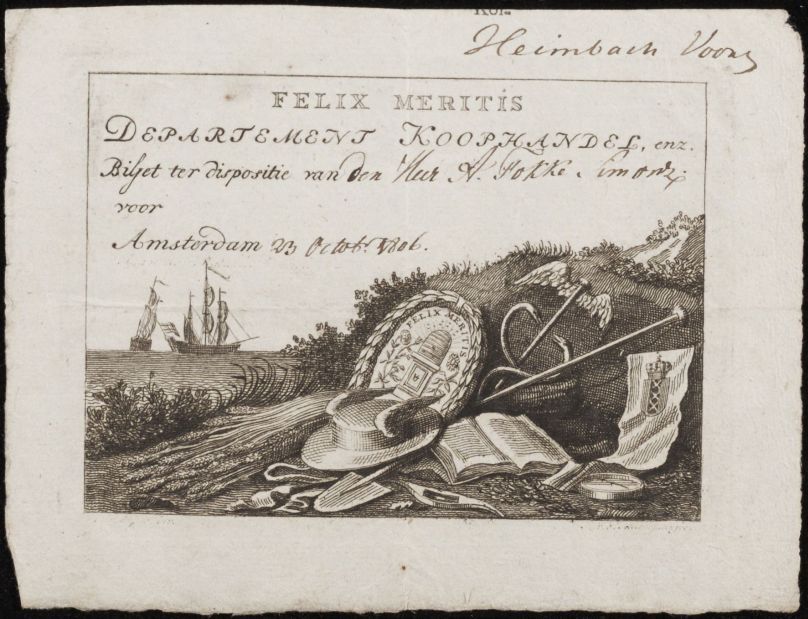 Heimbach Voorz
FELIX MERITIS
DEPARTEMENT KOOPHANDEL, enz.
Biljet ter dispositie van den Heer A. Fokke Simonsz.
voor
Amsterdam 23 Octob. 1806.
FELIX MERITIS